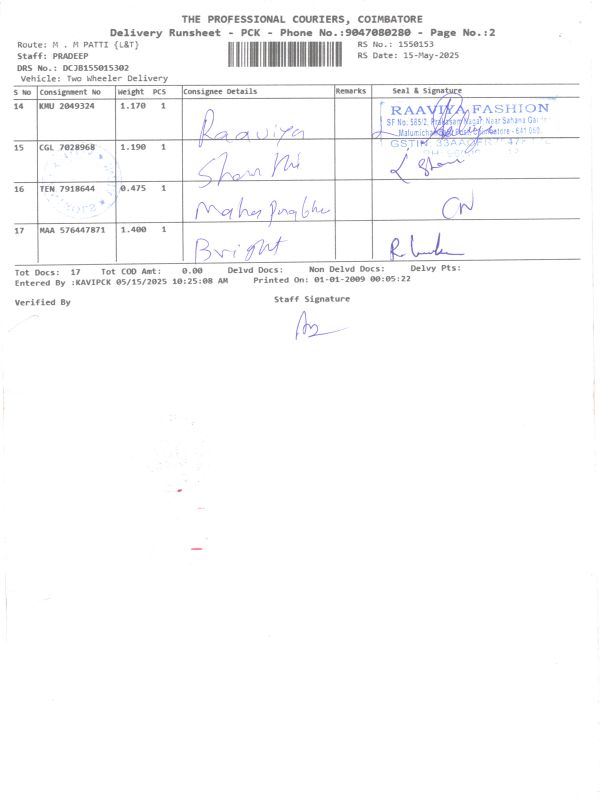 THE PROFESSIONAL COURIERS, COIMBATORE
Delivery Runsheet - PCK - Phone No.:9047080280 - Page No.:2
Route: M . M PATTI {L&T} RS No.: 1550153
Staff: PRADEEP RS Date: 15-May-2025
DRS No.: DCJB155015302
Vehicle: Two Wheeler Delivery
S No Consignment No Weight PCS Consignee Details Remarks Seal & Signature
14 KMU 2049324 1.170 1 Raaviya RAAVIYA FASHION
SF No: 585/2, Prakasam Nagar, Near Sahana
Coimbatore - 641 050.
GSTIN
15 CGL 7028968 1.190 1 Shan thi
16 TEN 7918644 0.475 1 Maha Prabhu CN
17 MAA 576447871 1.400 1 Bright
Tot Docs: 17 Tot COD Amt: 0.00 Delvd Docs: Non Delvd Docs: Delvy Pts:
Entered By :KAVIPCK 05/15/2025 10:25:08 AM Printed On: 01-01-2009 00:05:22
Verified By Staff Signature